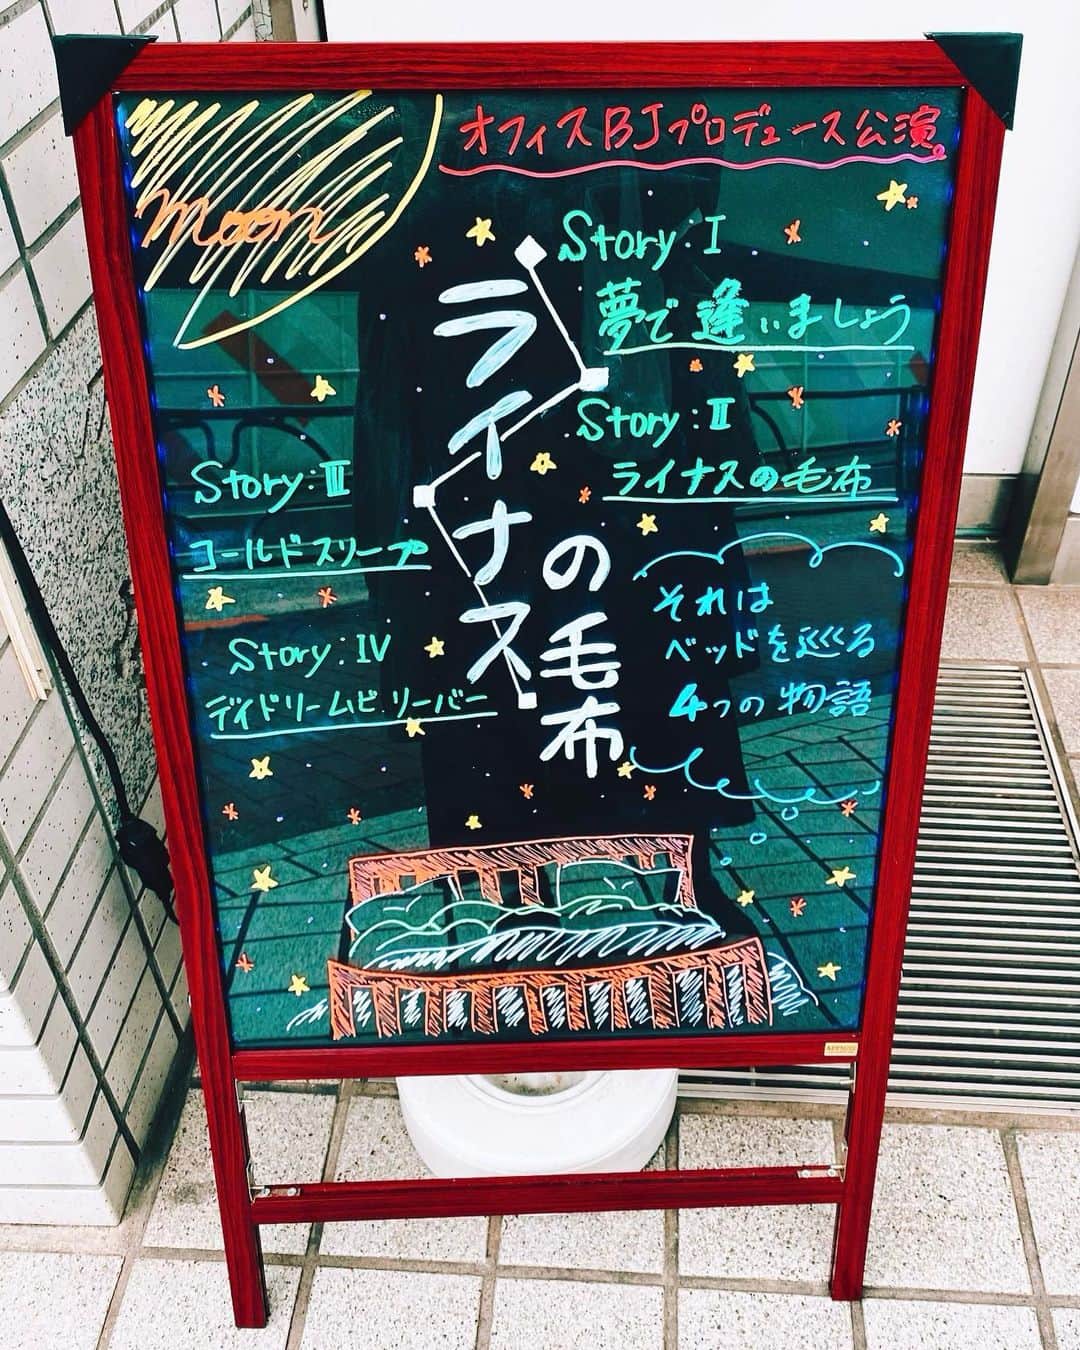 オフィスBJプロデュース公演。
moon
ライナス
の毛布
Story:Ⅰ
夢で逢いましょう
Story:Ⅱ
ライナスの毛布
Story:Ⅲ
コールドスリープ
Story:Ⅳ
デイドリームビリーバー
それは
ベッドを巡る
4つの物語